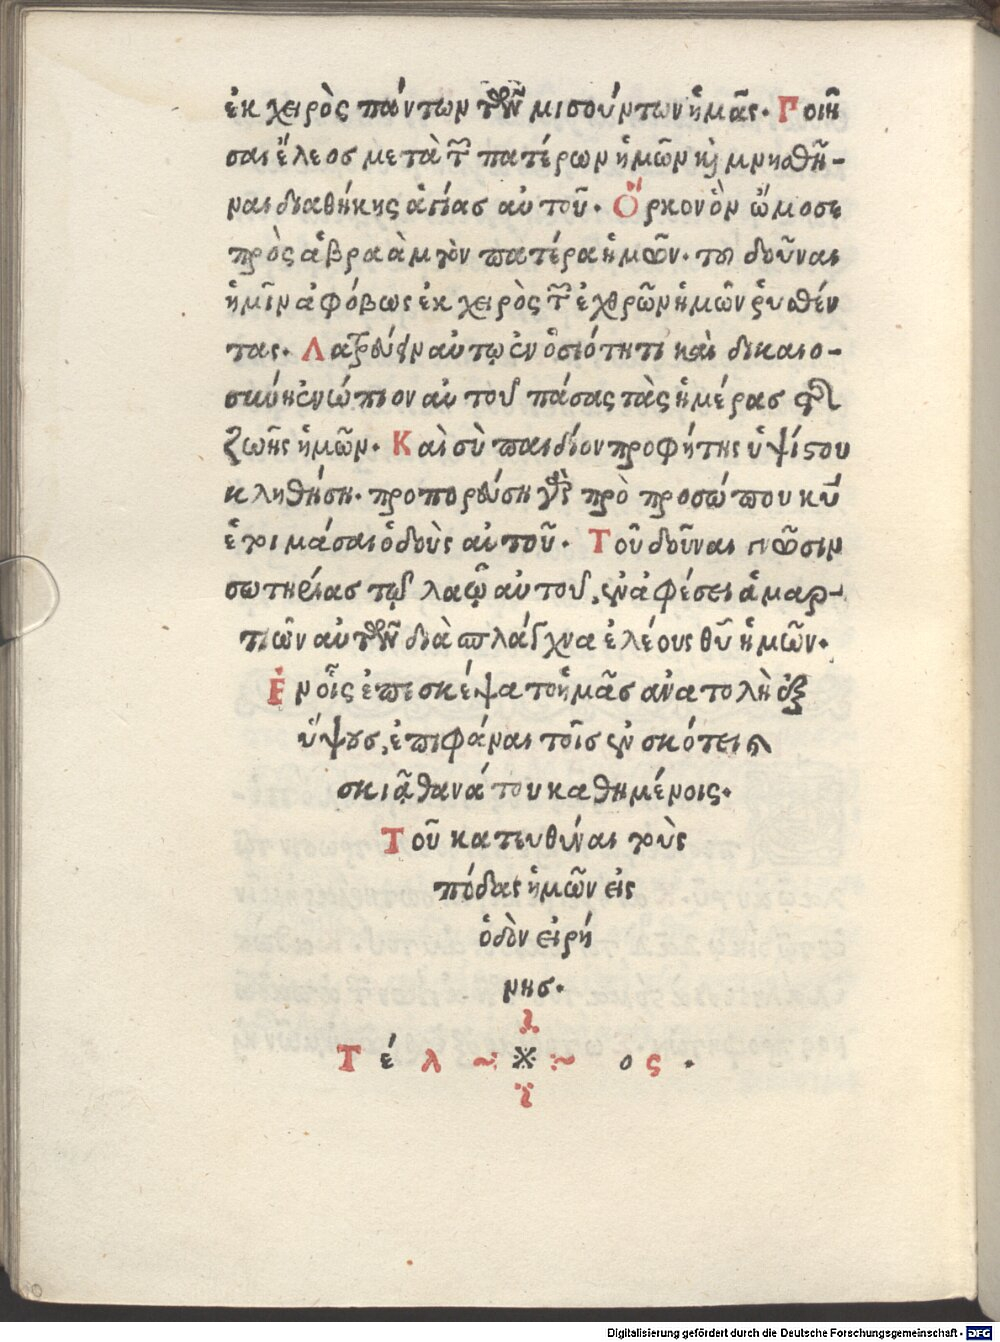 ἐκ χειρὸς πάντων τῶν μισούντων ἡμᾶς. Ποιῆ
σαι ἔλεοσ μετὰ τῶν πατέρων ἡμῶν καὶ μνησθῆ-
ναι διαθήκης ἁγίασ αὐτοῦ. Ὅρκον ὃν ὤμοσε
πρὸς ἀβραὰμ τὸν πατέρα ἡμῶν. του δοῦναι
ἡμῖν ἀφόβως ἐκ χειρὸς τῶν ἐχθρῶν ἡμῶν ῥυσθέν
τας. Λατρεύειν αὐτῳ ἐν ὁσιότητι καὶ δικαιο-
σύνη ἐνώπιον αὐτοῦ πάσας τὰς ἡμέρασ τῆς
ζωῆς ἡμῶν. Καὶ σὺ παιδίον προφήτης ὑψίστου
κληθήση. προπορεύση γὰρ πρὸ προσώπου κῡ
ἑτοιμάσαι ὁδοὺς αὐτοῦ. Τοῦ δοῦναι γνῶσιν
σωτηρίας τῷ λαῷ αὐτοῦ, ἐν ἀφέσει ἁμαρ-
τιῶν αὐτῶν διὰ σπλάγχνα ἐλέους θῡ ἡμῶν.
Ἐν οἷς ἐπισκέψατο ἡμᾶσ ἀνατολὴ ἐξ
ὕψουσ, ἐπιφάναι τοῖσ ἐν σκότει καὶ
σκιᾷ θανάτου καθημένοις.
Τοῦ κατευθύναι τοὺς
πόδας ἡμῶν εἰς
ὁδὸν εἰρή
νησ.
Τέλος.
Digitalisierung gefördert durch die Deutsche Forschungsgemeinschaft - DFG